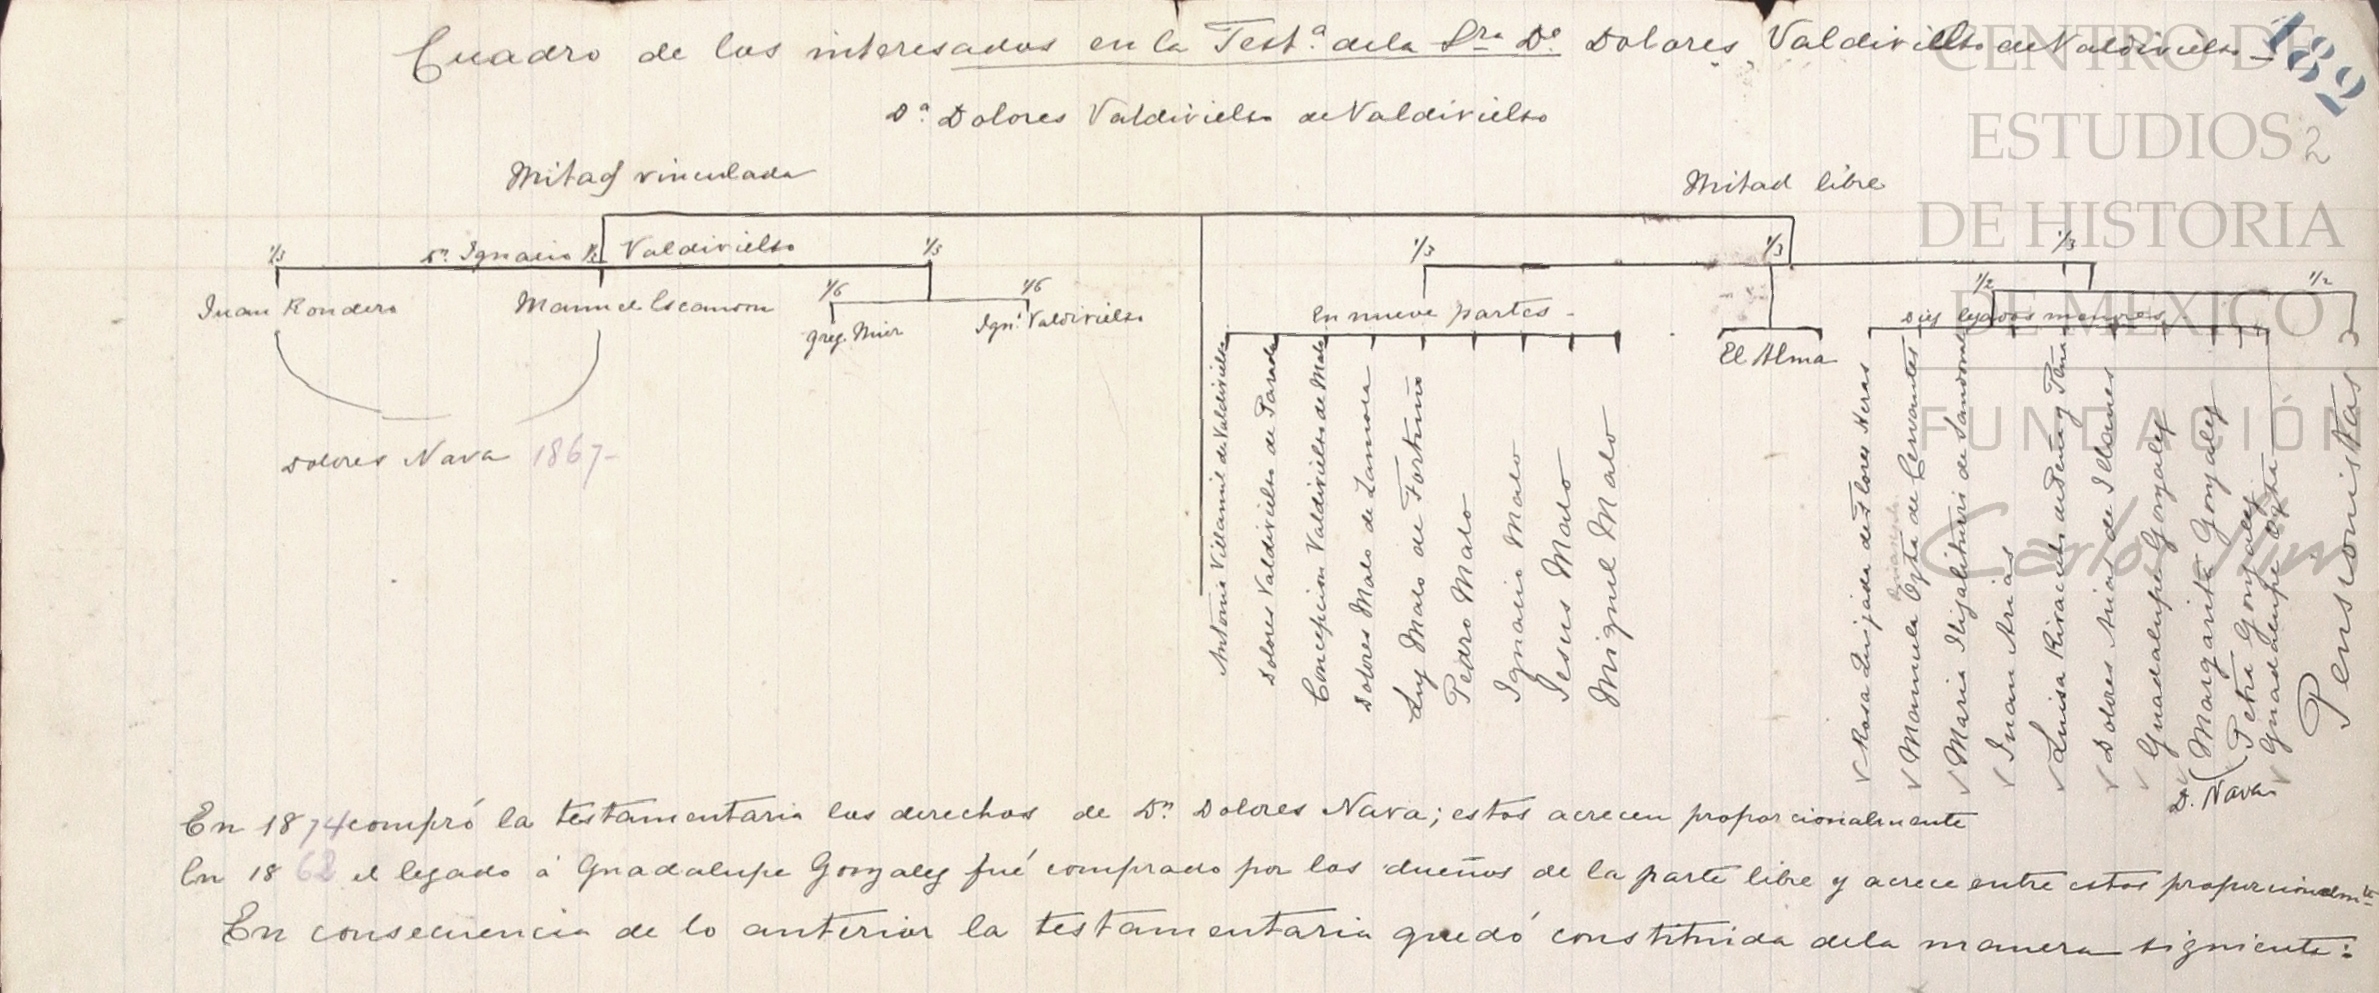 Cuadro de los interesados en la Test.ª de la Sra Dª Dolores Valdivielso de Valdivielso
182
2
Dª Dolores Valdivielso de Valdivielso
Mitad vinculada
Mitad libre
Dn Ignacio Valdivielso
1/3
1/3
1/3
1/3
1/3
1/3
Juan Rondero
Manuel Escandon
1/6
1/6
Greg. Mier
Ign.º Valdivielso
Dolores Nava 1867-
En nueve partes -
Antonia Villamil de Valdivielso
Dolores Valdivielso de Parada
Concepcion Valdivielso de Malo
Dolores Malo de Zamora
Luz Malo de Fortuño
Pedro Malo
Ignacio Malo
Jesus Malo
Miguel Malo
El Alma
1/2
1/2
Diez legados menores
Rosa Quijada de Flores Heras
Manuela Orta de Cervantes
Maria de Sandoval
Juan Arias
Luisa de Peña y Peña
Dolores Arias de Illanes
Guadalupe Gonzalez
Margarita Gonzalez
Petra Gonzalez
Guadalupe Orta
D. Nava
Pensionistas
En 1874 compró la testamentaria los derechos de Dn. Dolores Nava; estos acrecen proporcionalmente
En 1862 el legado á Guadalupe Gonzalez fué comprado por los dueños de la parte libre y acrece entre estos proporcionalmte
En consecuencia de lo anterior la testamentaria quedó constituida de la manera siguiente:
CENTRO DE
ESTUDIOS
DE HISTORIA
DE MÉXICO
FUNDACIÓN
Carlos Slim